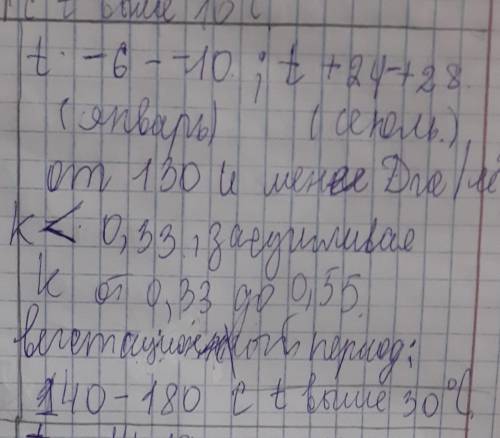 t выше 10 С
t -6 - -10 ; t +24-+28.
(январь) (июль.)
от 130 и менее
k < 0,33, засушливая
k от 0,33 до 0,55.
вегетационный период:
140-180 с t выше 30°С.